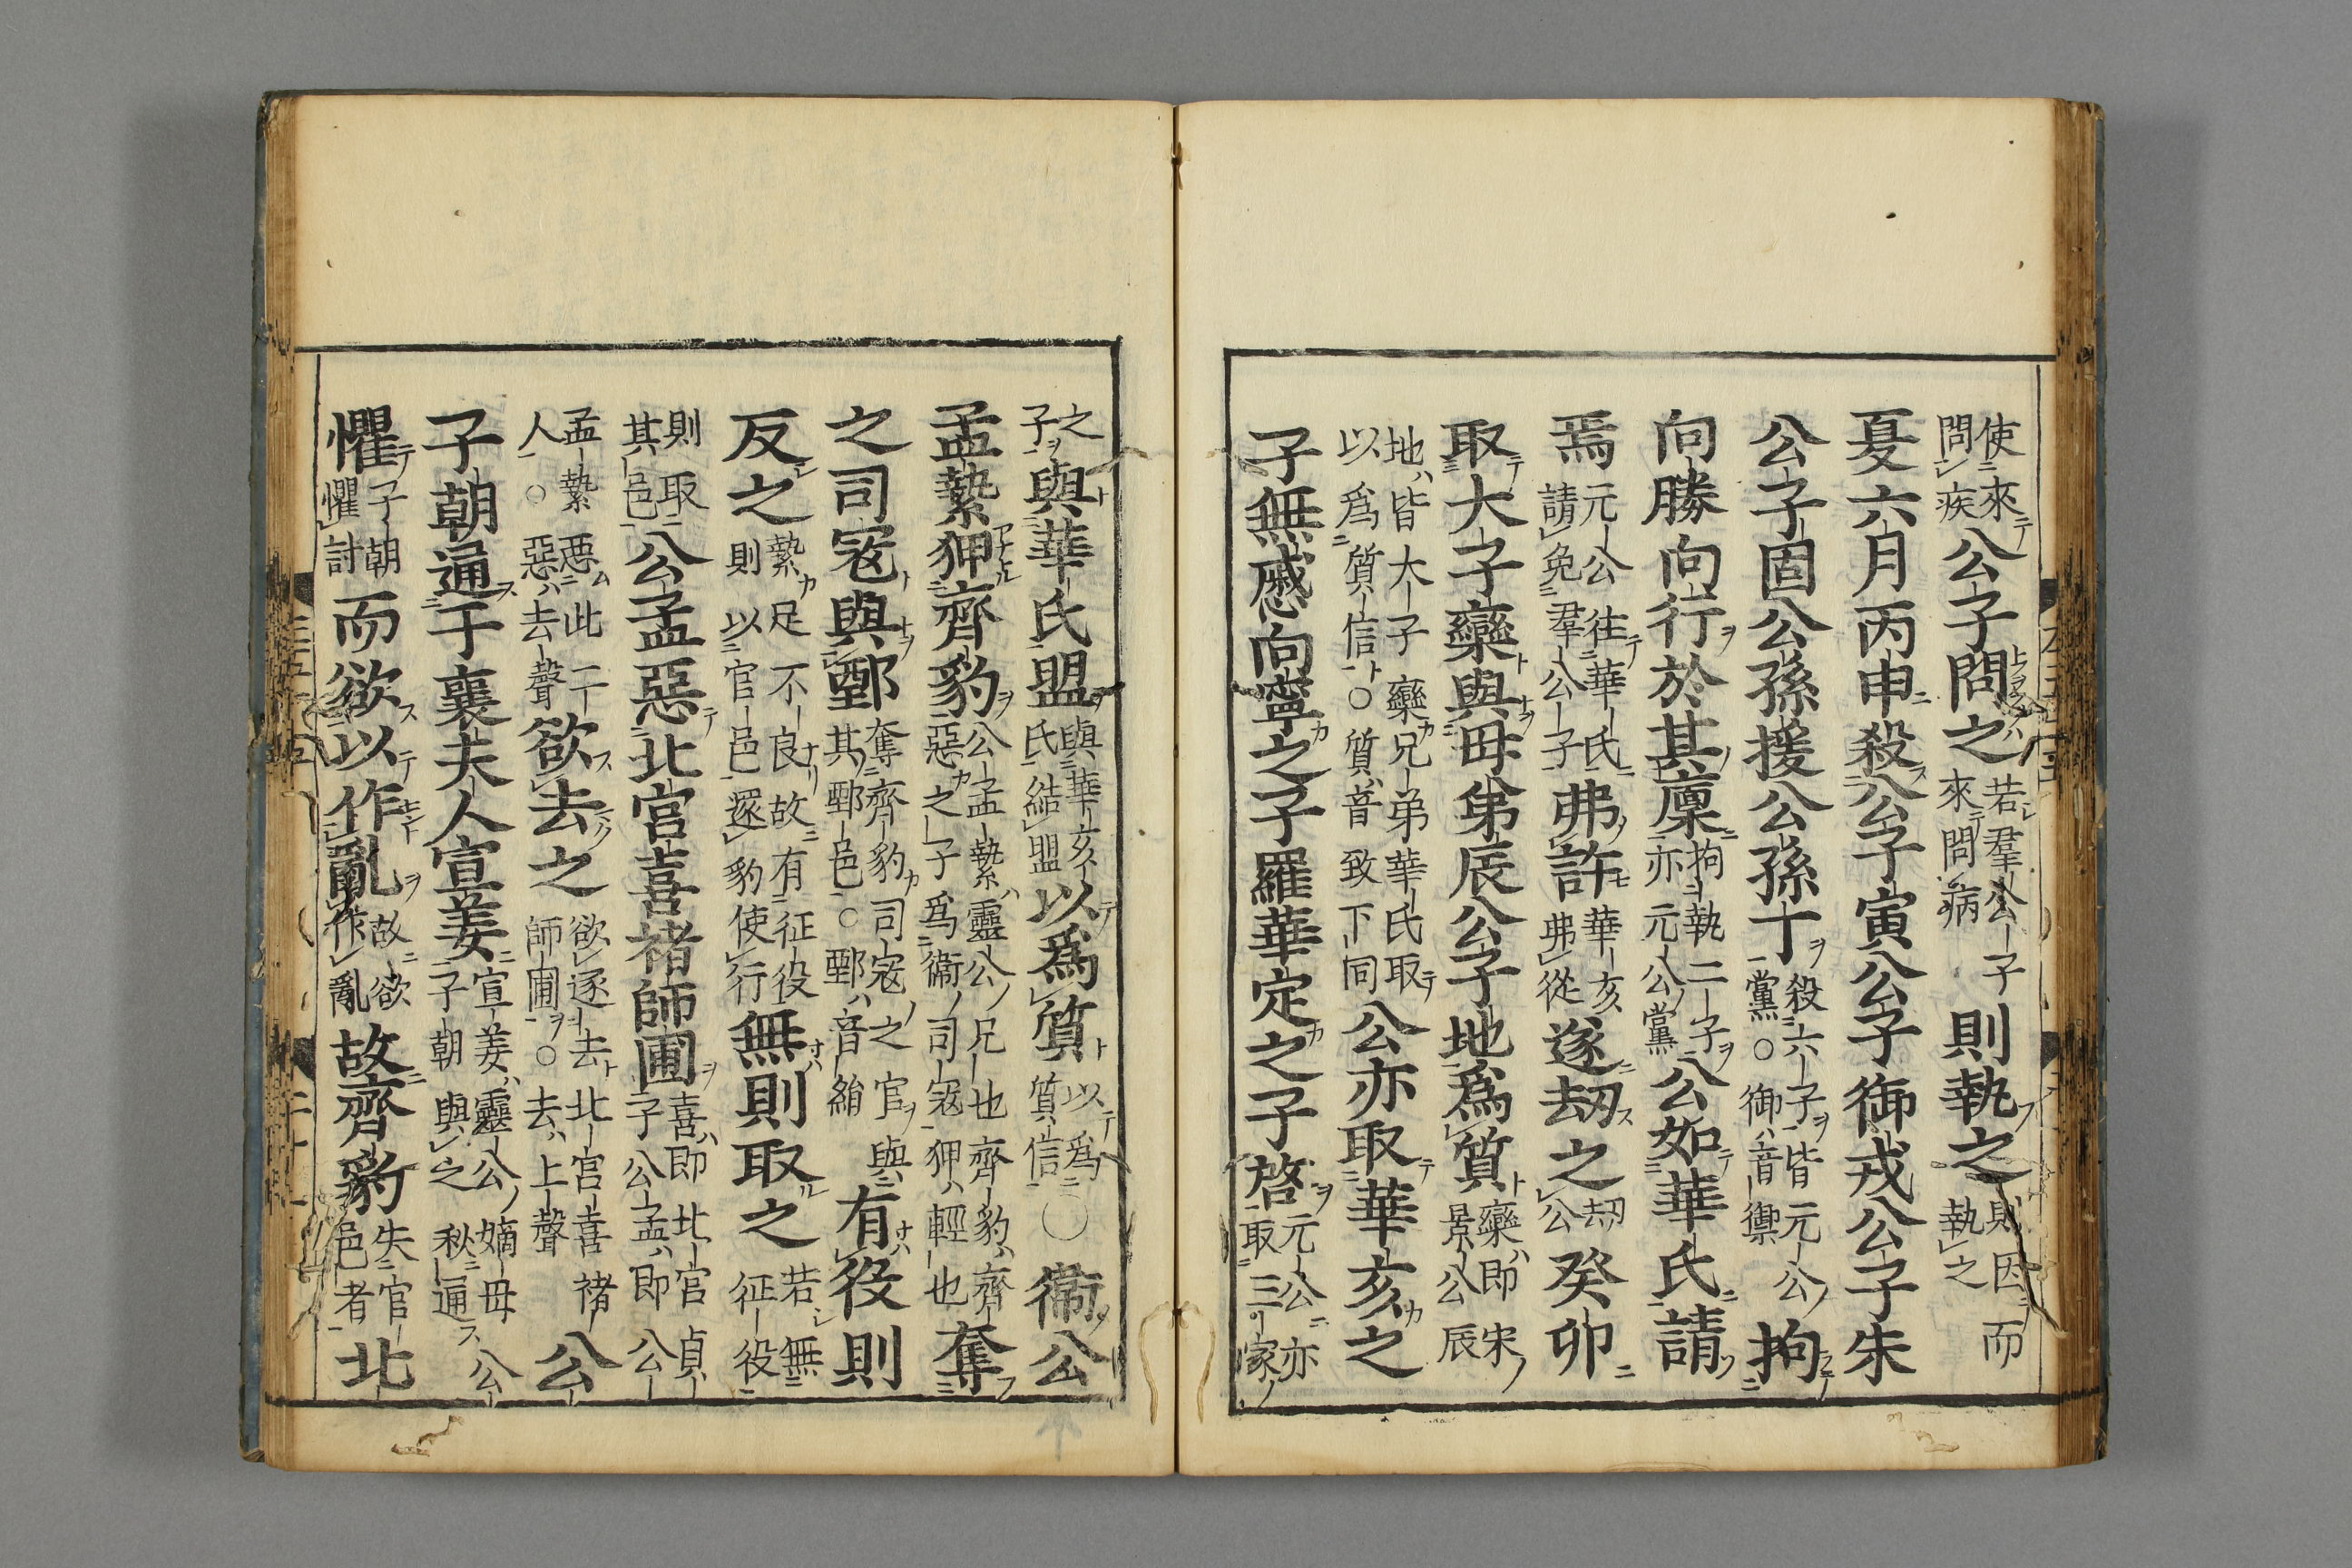 使來問疾公子問之若羣公子來問病則執之則因而執之
夏六月丙申殺公子寅公子御戎公子朱
公子固公孫援公孫丁殺六子皆元公黨○御音禦拘
向勝向行於其廩拘執二子亦元公黨公如華氏請
焉元公往華氏請免羣公子弗許華亥弗從遂劫之劫公癸卯
取大子欒與母弟辰公子地爲質欒即宋景公辰
地皆大子欒兄弟華氏取以爲質信○質音致下同公亦取華亥之
子無慼向寧之子羅華定之子啓元公亦取三家
之子與華氏盟與華亥氏結盟以爲質以爲質信○衞公
孟縶狎齊豹公孟縶靈公兄也齊豹齊惡之子爲衞司寇狎輕也奪
之司寇與鄄奪齊豹司寇之官與其鄄邑○鄄音絹有役則
反之縶足不良故有征役則以官邑還豹使行無則取之若無征役
則取其邑公孟惡北宮喜褚師圃喜即北官貞子公孟即公
孟縶惡此二人○惡去聲欲去之欲逐去北宮喜褚師圃○去上聲公
子朝通于襄夫人宣姜宣姜靈公嫡母子朝與之私通公
懼子朝懼討而欲以作亂故欲作亂故齊豹失官邑者北